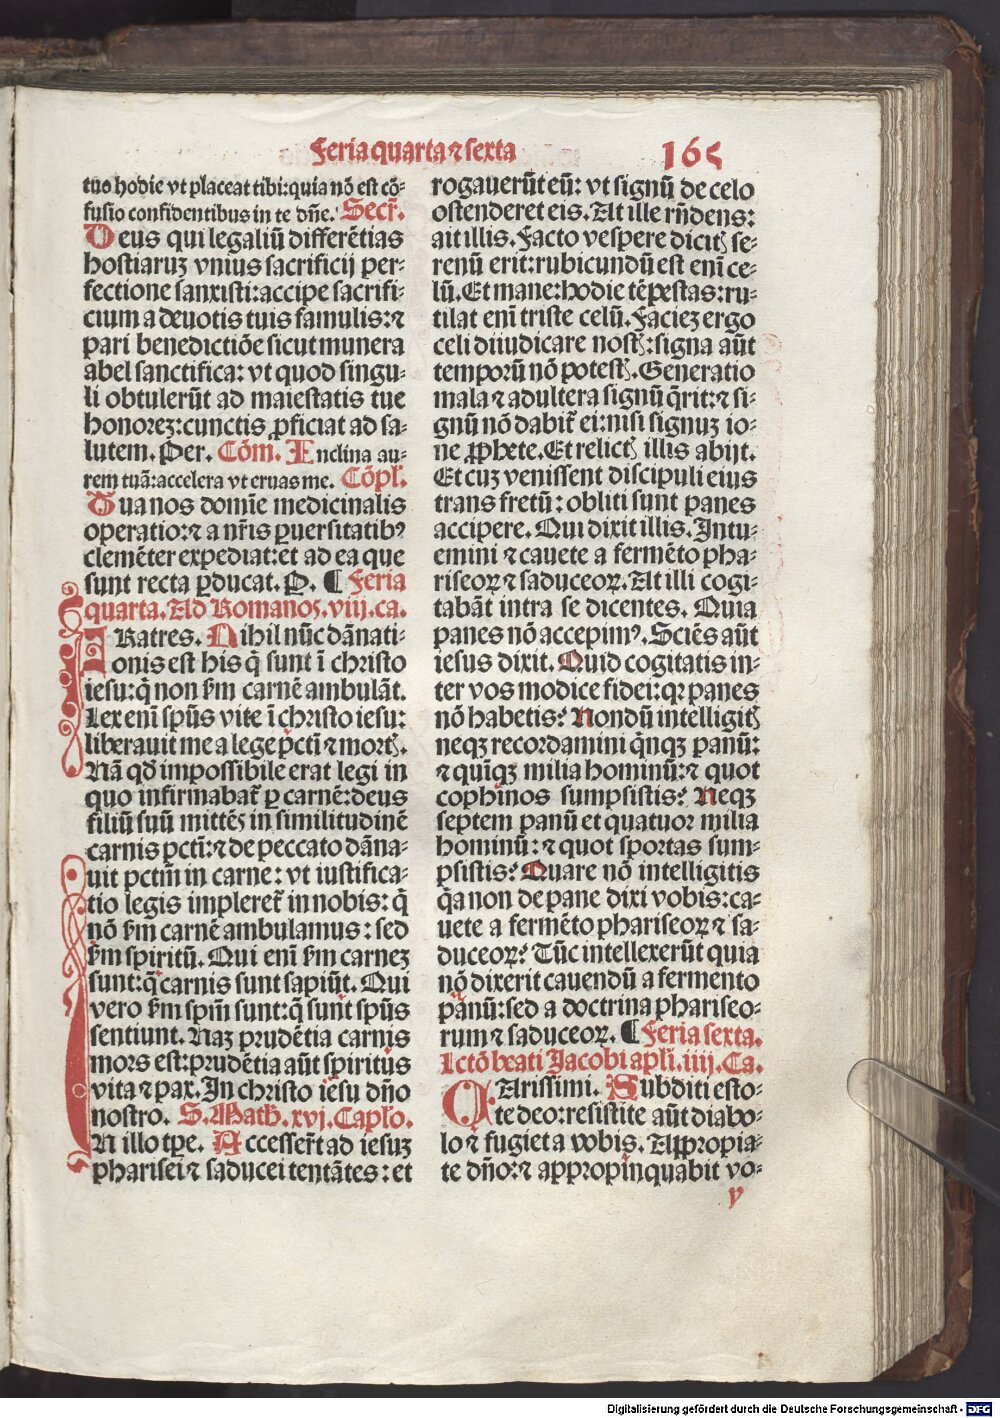 Feria quarta ⁊ sexta 165
tuo hodie vt placeat tibi:quia nō est cō⸗
fusio confidentibus in te dn̄e. Secr̄.
Deus qui legaliū differētias
hostiaruꝫ vnius sacrificij per⸗
fectione sanxisti:accipe sacrifi⸗
cium a deuotis tuis famulis:⁊
pari benedictiōe sicut munera
abel sanctifica: vt quod singu⸗
li obtulerūt ad maiestatis tue
honorez:cunctis ꝓficiat ad sa⸗
lutem. Per. Cōm. Inclina au⸗
rem tuā:accelera vt eruas me. Cōpl̄.
Tua nos domīe medicinalis
operatio:⁊ a nr̄is ꝑuersitatibꝰ
clemēter expediat:et ad ea que
sunt recta ꝑducat. P. ¶ Feria
quarta. Ad Romanos. viij. ca.
FRatres. Nihil nūc dānati⸗
onis est his q̄ sunt ī christo
iesu:q̄ non ẜm carnē ambulāt.
Lex enī spūs vite ī christo iesu:
liberauit me a lege pcti ⁊ mortꝭ.
Nā qd̄ impossibile erat legi in
quo infirmabat̄ ꝑ carnē:deus
filiū suū mittēs in similitudinē
carnis pcti:⁊ de peccato dāna⸗
uit pctm̄ in carne: vt iustifica⸗
tio legis impleret̄ in nobis: q̄
nō ẜm carnē ambulamus: sed
ẜm spiritū. Qui enī ẜm carnez
sunt:q̄ carnis sunt sapiūt. Qui
vero ẜm spm̄ sunt:q̄ sunt spūs
sentiunt. Naꝫ prudētia carnis
mors est:prudētia aūt spiritus
vita ⁊ pax. In christo iesu dn̄o
nostro. S. Math. xvj. Caplo.
In illo tꝑe. Accesser̄t ad iesuꝫ
pharisei ⁊ saducei tentātes: et
rogauerūt eū: vt signū de celo
ostenderet eis. At ille rn̄dens:
ait illis. Facto vespere dicitꝭ se⸗
renū erit:rubicundū est enī ce⸗
lū. Et mane:hodie tēpestas:ru⸗
tilat enī triste celū. Faciez ergo
celi diiudicare nostꝭ:signa aūt
temporū nō potestꝭ. Generatio
mala ⁊ adultera signū q̄rit:⁊ si⸗
gnū nō dabit̄ ei:nisi signuꝫ io⸗
ne ꝓphete. Et relictꝭ illis abijt.
Et cuꝫ venissent discipuli eius
trans fretū: obliti sunt panes
accipere. Qui dixit illis. Intu⸗
emini ⁊ cauete a fermēto pha⸗
riseoꝝ ⁊ saduceoꝝ. At illi cogi⸗
tabāt intra se dicentes. Quia
panes nō accepimꝰ. Sciēs aūt
iesus dixit. Quid cogitatis in⸗
ter vos modice fidei:qꝛ panes
nō habetis? Nondū intelligitꝭ
neqꝫ recordamini q̄nqꝫ panū:
⁊ quīqꝫ milia hominū:⁊ quot
cophinos sumpsistis? Neqꝫ
septem panū et quatuor milia
hominū: ⁊ quot sportas sum⸗
psistis? Quare nō intelligitis
q̄a non de pane dixi vobis:ca⸗
uete a fermēto phariseoꝝ ⁊ sa⸗
duceoꝝ? Tūc intellexerūt quia
nō dixerit cauendū a fermento
panū:sed a doctrina phariseo⸗
rum ⁊ saduceoꝝ. ¶ Feria sexta.
Lctō beati Jacobi apli. iiij. Ca.
CArissimi. Subditi esto⸗
te deo:resistite aūt diabo⸗
lo ⁊ fugiet a vobis. Appropia⸗
te dn̄o:⁊ appropinquabit vo⸗
y
Digitalisierung gefördert durch die Deutsche Forschungsgemeinschaft - DFG